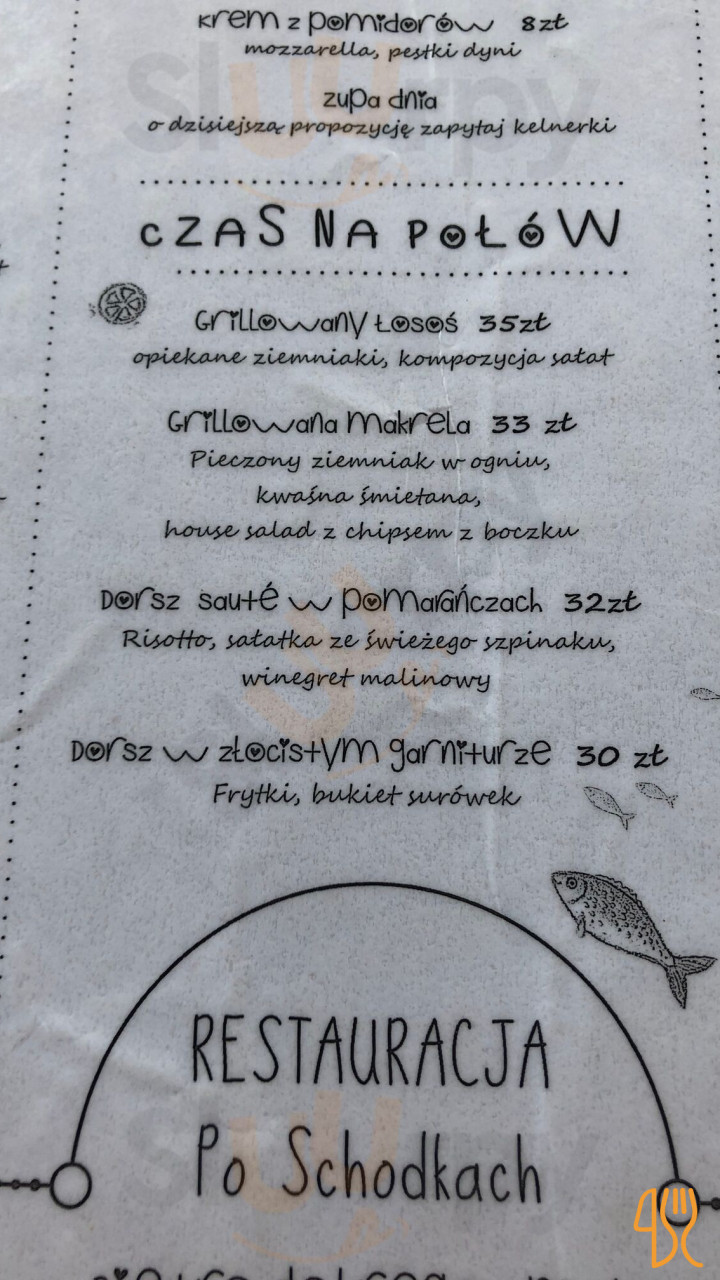 krem z pomidorów 8zł
mozzarella, pestki dyni
zupa dnia
o dzisiejszą propozycję zapytaj kelnerki
CZAS NA POŁÓW
Grillowany Łosoś 35zł
opiekane ziemniaki, kompozycja sałat
Grillowana makrela 33 zł
Pieczony ziemniak w ogniu,
kwaśna śmietana,
house salad z chipsem z boczku
Dorsz sauté w pomarańczach 32zł
Risotto, sałatka ze świeżego szpinaku,
winegret malinowy
Dorsz w złocistym garniturze 30 zł
Frytki, bukiet surówek
RESTAURACJA
Po Schodkach